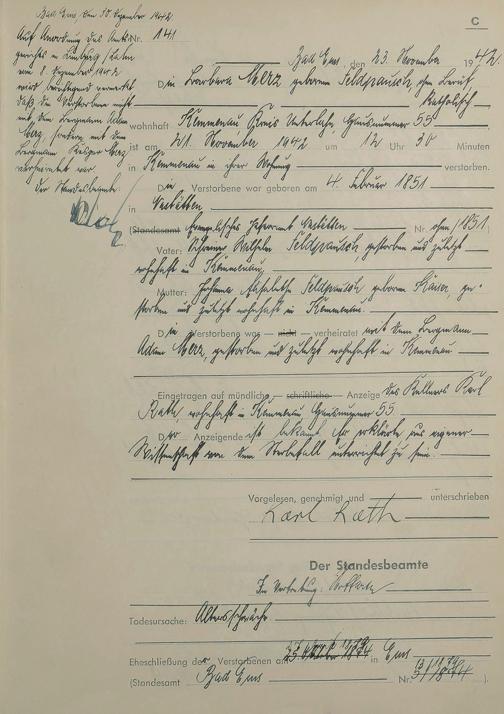 Bad Ems, den 30. Dezember 1942
Auf Anordnung des Amts-
gerichts in Limburg/Lahn
vom 8. Dezember 1942
wird berichtigend vermerkt
daß die Verstorbene nicht
mit dem Bergmann Adam
Merz, sondern mit dem
Bergmann Merz
verheiratet war.
Der Standesbeamte
C
Nr. 141
Bad Ems, den 23. November 1942.
Die Barbara Merz geborene Feldpausch, ohne Beruf,
Katholisch
wohnhaft Kemmenau Kreis Unterlahn, Hausnummer 55
ist am 21. November 1942 um 12 Uhr 30 Minuten
in Kemmenau in ihrer Wohnung verstorben.
Die Verstorbene war geboren am 4. Februar 1851
in
(Standesamt Evangelisches Pfarramt Nr. ohne/1851)
Vater: Wilhelm Feldpausch, gestorben und zuletzt
wohnhaft in Kemmenau,
Mutter: Elisabeth Feldpausch geborene ge-
storben und zuletzt wohnhaft in Kemmenau.
Die Verstorbene war — nicht — verheiratet mit dem Bergmann
Adam Merz, gestorben und zuletzt wohnhaft in Kemmenau
Eingetragen auf mündliche — schriftliche — Anzeige des Kellners Karl
Rath, wohnhaft in Kemmenau Hausnummer 55
Der Anzeigende ist bekannt. Er erklärte aus eigener
Wissenschaft von dem Sterbefall unterrichtet zu sein.
Vorgelesen, genehmigt und unterschrieben
Karl Rath
Der Standesbeamte
In Vertretung:
Todesursache: Altersschwäche
Eheschließung der Verstorbenen am in Ems
(Standesamt Bad Ems Nr. ).